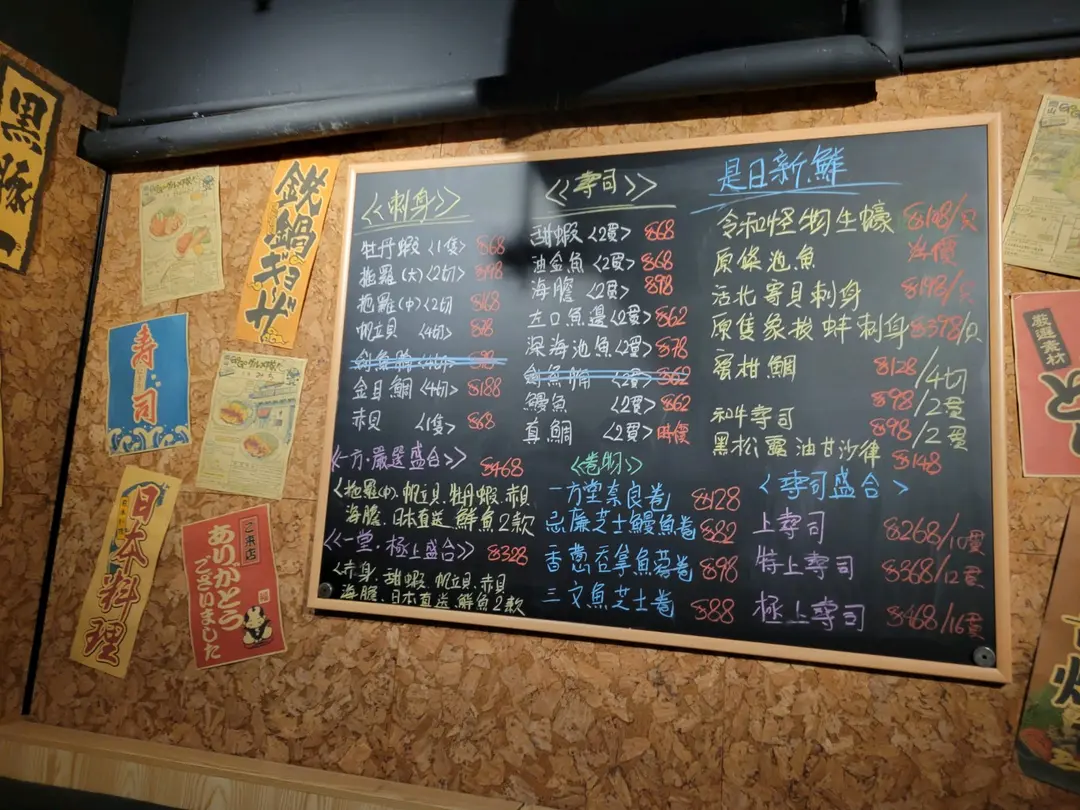 黑豚
鉄鍋ギョーザ
寿司
日本料理
ご来店
ありがとう
ございました
<<刺身>>
牡丹蝦<1隻> $68
拖羅(大)<2切>
拖羅(中)<2切 $168
帆立貝 <4切>
金目鯛<4切> $188
赤貝 <1隻> $68
<<一方·嚴選盛合>> $468
<拖羅(中).帆立貝.牡丹蝦.赤貝
海膽.日本直送鮮魚2款
<<一堂·極上盛合>> $328
<赤身.甜蝦.帆立貝.赤貝
海膽.日本直送鮮魚2款
<<壽司>>
甜蝦<2貫> $68
油金魚<2貫> $68
海膽<2貫> $98
左口魚邊<2貫> $62
深海池魚<2貫> $78
鰻魚 <2貫> $62
真鯛 <2貫> 時價
<卷物>
一方堂奈良卷 $128
忌廉芝士鰻魚卷 $82
香蔥吞拿魚蓉卷 $98
三文魚芝士卷 $88
是日新鮮
令和怪物生蠔 $108/只
原條池魚 時價
活北寄貝刺身 $198/只
原隻象拔蚌刺身 $398/只
蜜柑鯛 $128/4切
$98/2貫
和牛壽司 $98/2貫
黑松露油甘沙律 $148
<壽司盛合>
上壽司 $268/10貫
特上壽司 $368/12貫
極上壽司 $468/16貫
厳選素材